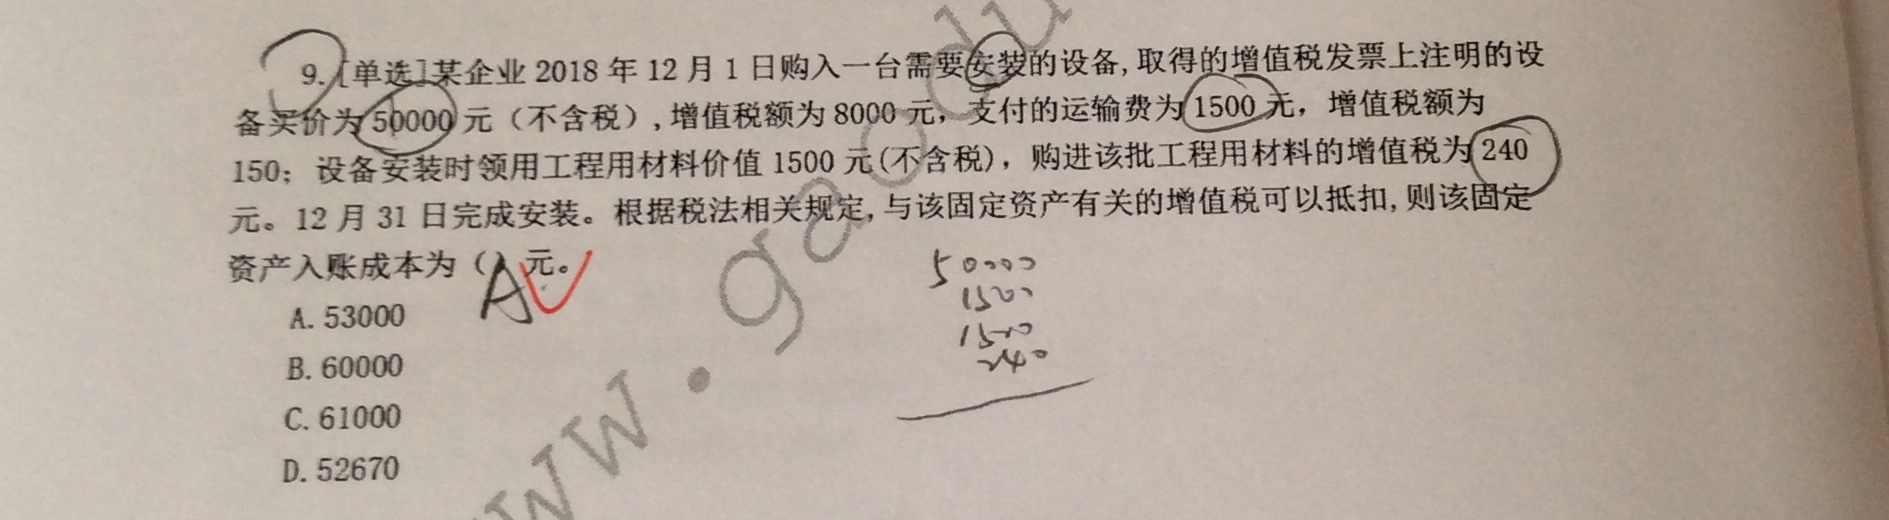 9.[单选]某企业 2018 年 12 月 1 日购入一台需要安装的设备,取得的增值税发票上注明的设
备买价为 50000 元（不含税）,增值税额为 8000 元，支付的运输费为 1500 元，增值税额为
150；设备安装时领用工程用材料价值 1500 元(不含税)，购进该批工程用材料的增值税为 240
元。12 月 31 日完成安装。根据税法相关规定,与该固定资产有关的增值税可以抵扣,则该固定
资产入账成本为（）元。
A
A. 53000
B. 60000
C. 61000
D. 52670
50000
1500
1500
240
www.gaodu